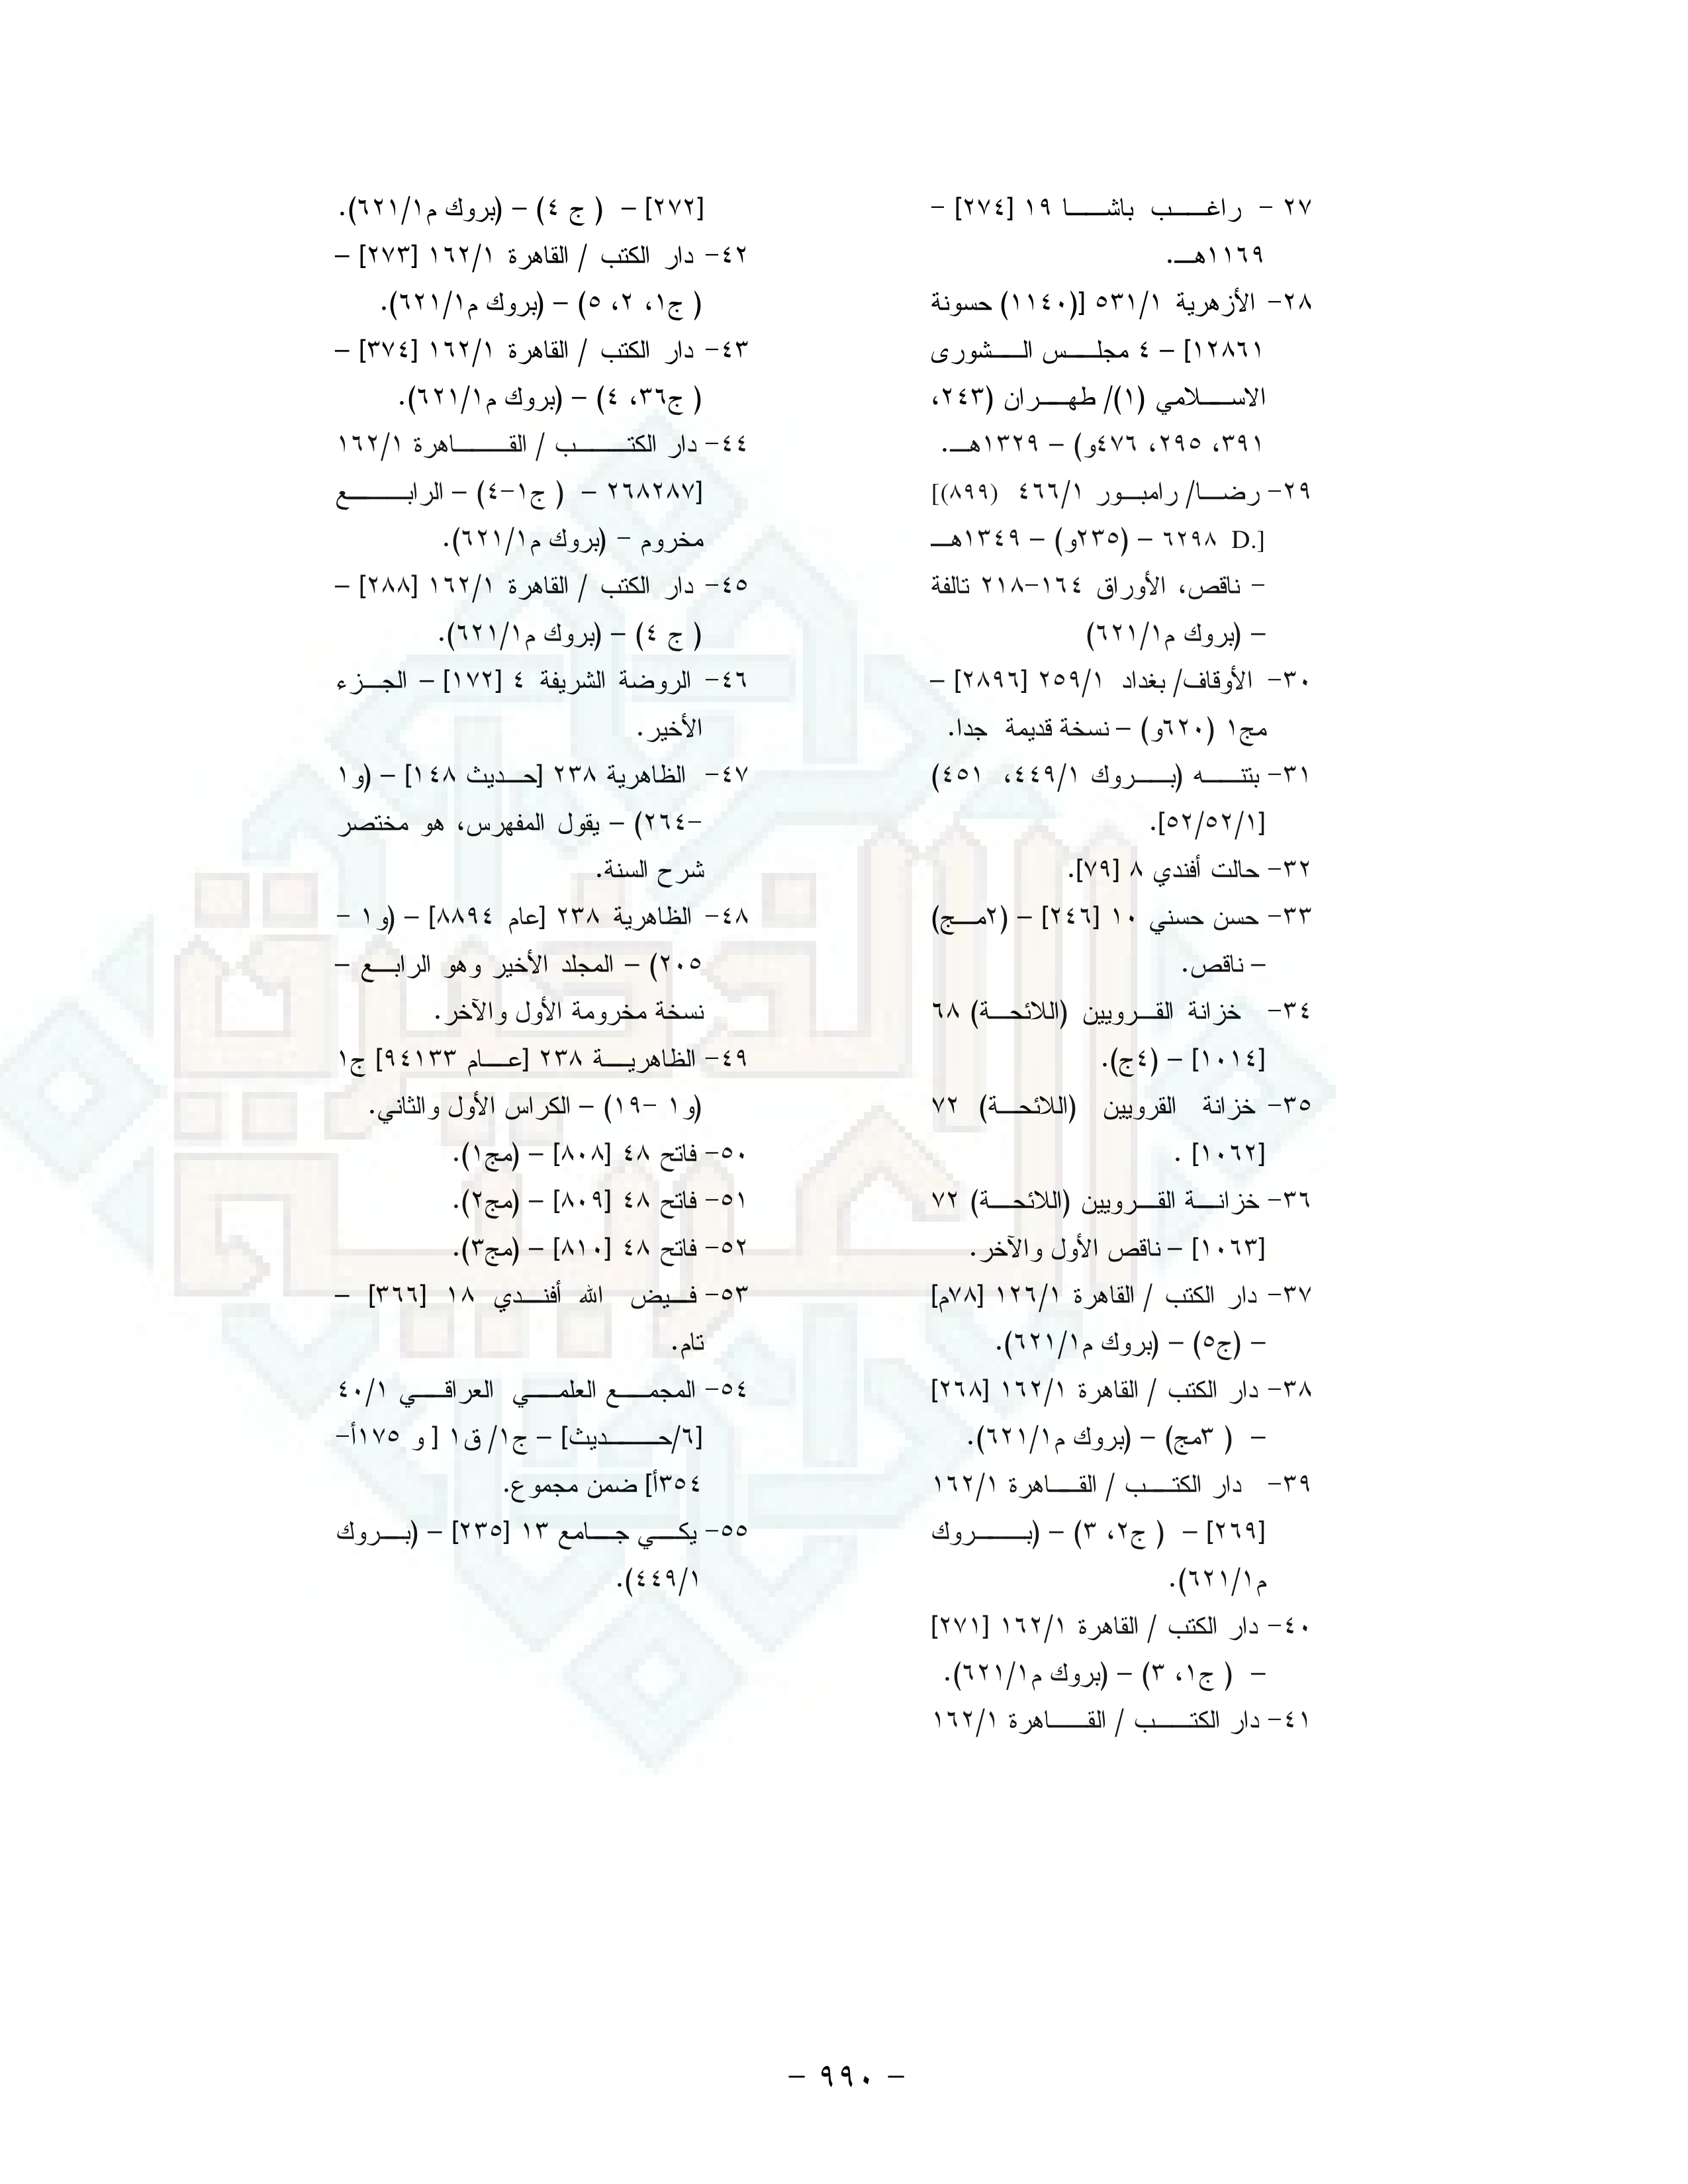 ٢٧ - راغب باشا ١٩ [٢٧٤] -
١١٦٩هـ.
٢٨- الأزهرية ٥٣١/١ [(١١٤٠) حسونة
١٢٨٦١] – ٤ مجلس الشورى
الاسلامي (١)/ طهران (٢٤٣،
٣٩١، ٢٩٥، ٤٧٦و) – ١٣٢٩هـ.
٢٩- رضا/ رامبور ٤٦٦/١ (٨٩٩)]
[.D ٦٢٩٨ – (٢٣٥و) – ١٣٤٩هـ
– ناقص، الأوراق ١٦٤-٢١٨ تالفة
– (بروك م٦٢١/١)
٣٠- الأوقاف/ بغداد ٢٥٩/١ [٢٨٩٦] –
مج١ (٦٢٠و) – نسخة قديمة جدا.
٣١- بتنه (بروك ٤٤٩/١، ٤٥١)
[٥٢/٥٢/١].
٣٢- حالت أفندي ٨ [٧٩].
٣٣- حسن حسني ١٠ [٢٤٦] – (٢مج)
– ناقص.
٣٤- خزانة القرويين (اللائحة) ٦٨
[١٠١٤] – (٤ج).
٣٥- خزانة القرويين (اللائحة) ٧٢
[١٠٦٢] .
٣٦- خزانة القرويين (اللائحة) ٧٢
[١٠٦٣] – ناقص الأول والآخر.
٣٧- دار الكتب / القاهرة ١٢٦/١ [٧٨م]
– (ج٥) – (بروك م٦٢١/١).
٣٨- دار الكتب / القاهرة ١٦٢/١ [٢٦٨]
– ( ٣مج) – (بروك م٦٢١/١).
٣٩- دار الكتب / القاهرة ١٦٢/١
[٢٦٩] – ( ج٢، ٣) – (بروك
م٦٢١/١).
٤٠- دار الكتب / القاهرة ١٦٢/١ [٢٧١]
– ( ج١، ٣) – (بروك م٦٢١/١).
٤١- دار الكتب / القاهرة ١٦٢/١
[٢٧٢] – ( ج ٤) – (بروك م٦٢١/١).
٤٢- دار الكتب / القاهرة ١٦٢/١ [٢٧٣] –
( ج١، ٢، ٥) – (بروك م٦٢١/١).
٤٣- دار الكتب / القاهرة ١٦٢/١ [٣٧٤] –
( ج٣٦، ٤) – (بروك م٦٢١/١).
٤٤- دار الكتب / القاهرة ١٦٢/١
[٢٦٨٢٨٧ – ( ج١-٤) – الرابع
مخروم – (بروك م٦٢١/١).
٤٥- دار الكتب / القاهرة ١٦٢/١ [٢٨٨] –
( ج ٤) – (بروك م٦٢١/١).
٤٦- الروضة الشريفة ٤ [١٧٢] – الجزء
الأخير.
٤٧- الظاهرية ٢٣٨ [حديث ١٤٨] – (و١
-٢٦٤) – يقول المفهرس، هو مختصر
شرح السنة.
٤٨- الظاهرية ٢٣٨ [عام ٨٨٩٤] – (و١ -
٢٠٥) – المجلد الأخير وهو الرابع –
نسخة مخرومة الأول والآخر.
٤٩- الظاهرية ٢٣٨ [عام ٩٤١٣٣] ج١
(و١ -١٩) – الكراس الأول والثاني.
٥٠- فاتح ٤٨ [٨٠٨] – (مج١).
٥١- فاتح ٤٨ [٨٠٩] – (مج٢).
٥٢- فاتح ٤٨ [٨١٠] – (مج٣).
٥٣- فيض الله أفندي ١٨ [٣٦٦] –
تام.
٥٤- المجمع العلمي العراقي ٤٠/١
[٦/حديث] – ج١/ ق١ [ و ١٧٥أ-
٣٥٤أ] ضمن مجموع.
٥٥- يكي جامع ١٣ [٢٣٥] – (بروك
٤٤٩/١).
– ٩٩٠ –